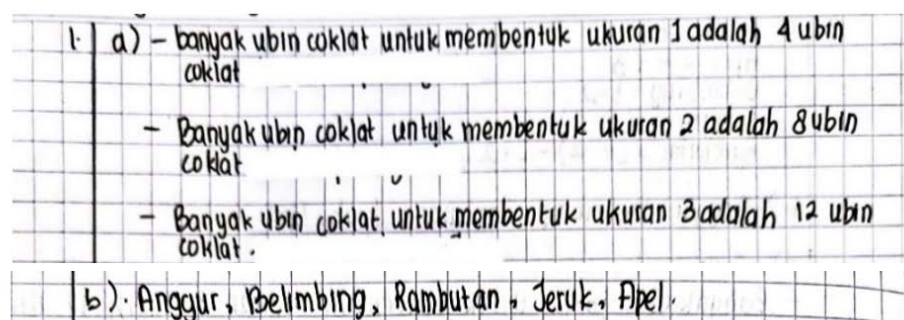 1. a) - banyak ubin coklat untuk membentuk ukuran 1 adalah 4 ubin
coklat
- Banyak ubin coklat untuk membentuk ukuran 2 adalah 8 ubin
coklat
- Banyak ubin coklat untuk membentuk ukuran 3 adalah 12 ubin
coklat.
b). Anggur, Belimbing, Rambutan, Jeruk, Apel